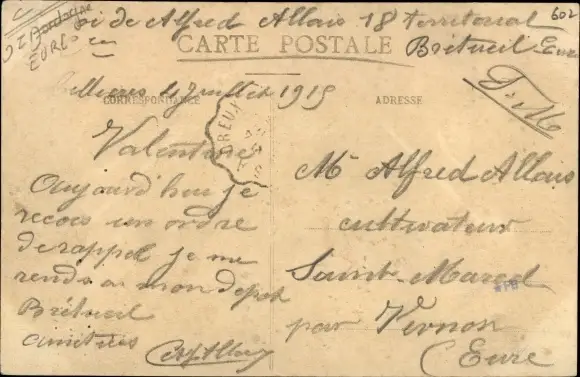 602
Dordogne
EURE
de Alfred Allais 18 Territorial
CARTE POSTALE
Bréteuil Eure
F. M.
4 Juillet 1915
CORRESPONDANCE
ADRESSE
Valentine
Aujourd'hui je
recois un ordre
de rappel je me
rends a mon depot
Bréteuil
amitiés
Mr Alfred Allais
cultivateur
Saint-Marcel
par Vernon
(Eure